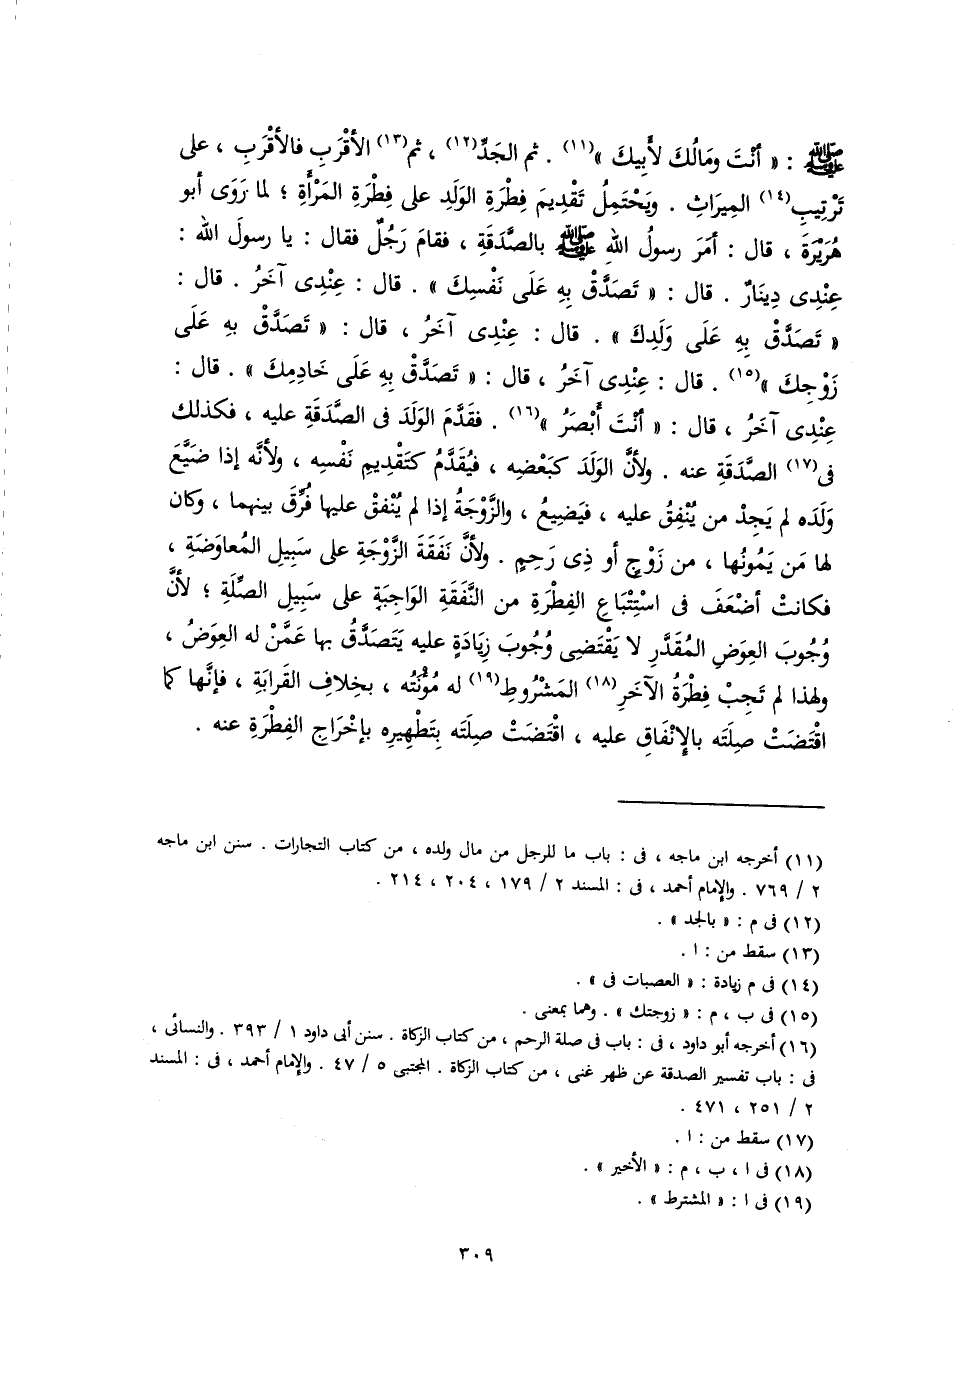 ﷺ : « أَنْتَ ومَالُكَ لأَبِيكَ »(١١) . ثم الجَدِّ(١٢) ، ثم(١٣) الأقْرَبِ فالأقْرَبِ ، على
تَرْتِيبِ(١٤) المِيرَاثِ . ويَحْتَمِلُ تَقْدِيمَ فِطْرَةِ الوَلَدِ على فِطْرَةِ المَرْأَةِ ؛ لما رَوَى أبو
هُرَيْرَةَ ، قال : أمَرَ رسولُ اللهِ ﷺ بالصَّدَقَةِ ، فقامَ رَجُلٌ فقال : يا رسولَ اللهِ :
عِنْدِى دِينَارٌ . قال : « تَصَدَّقْ بِهِ عَلَى نَفْسِكَ » . قال : عِنْدِى آخَرُ . قال :
« تَصَدَّقْ بِهِ عَلَى وَلَدِكَ » . قال : عِنْدِى آخَرُ ، قال : « تَصَدَّقْ بهِ عَلَى
زَوْجِكَ »(١٥) . قال : عِنْدِى آخَرُ ، قال : « تَصَدَّقْ بِهِ عَلَى خَادِمِكَ » . قال :
عِنْدِى آخَرُ ، قال : « أنْتَ أَبْصَرُ »(١٦) . فقَدَّمَ الوَلَدَ فى الصَّدَقَةِ عليه ، فكذلك
فى(١٧) الصَّدَقَةِ عنه . ولأنَّ الوَلَدَ كبَعْضِه ، فيُقَدَّمُ كتَقْدِيمِ نَفْسِه ، ولأنَّه إذا ضَيَّعَ
وَلَدَه لم يَجِدْ من يُنْفِقُ عليه ، فيَضِيعُ ، والزَّوْجَةُ إذا لم يُنْفِقْ عليها فُرِّقَ بينهما ، وكان
لها مَن يَمُونُها ، من زَوْجٍ أو ذِى رَحِمٍ . ولأنَّ نَفَقَةَ الزَّوْجَةِ على سَبِيلِ المُعاوَضَةِ ،
فكانتْ أضْعَفَ فى اسْتِتْبَاعِ الفِطْرَةِ من النَّفَقَةِ الوَاجِبَةِ على سَبِيلِ الصِّلَةِ ؛ لأنَّ
وُجُوبَ العِوَضِ المُقَدَّرِ لا يَقْتَضِى وُجُوبَ زِيَادَةٍ عليه يَتَصَدَّقُ بها عَمَّنْ له العِوَضُ ،
ولهذا لم تَجِبْ فِطْرَةُ الآخَرِ(١٨) المَشْرُوطِ(١٩) له مُؤْنَتُه ، بخِلافِ القَرابَةِ ، فإنَّها كما
اقْتَضَتْ صِلَتَه بالإنْفَاقِ عليه ، اقْتَضَتْ صِلَتَه بِتَطْهِيرِه بإخْرَاجِ الفِطْرَةِ عنه .
(١١) أخرجه ابن ماجه ، فى : باب ما للرجل من مال ولده ، من كتاب التجارات . سنن ابن ماجه
٢ / ٧٦٩ . والإمام أحمد ، فى : المسند ٢ / ١٧٩ ، ٢٠٤ ، ٢١٤ .
(١٢) فى م : « بالجد » .
(١٣) سقط من : ا .
(١٤) فى م زيادة : « العصبات فى » .
(١٥) فى ب ، م : « زوجتك » . وهما بمعنى .
(١٦) أخرجه أبو داود ، فى : باب فى صلة الرحم ، من كتاب الزكاة . سنن أبى داود ١ / ٣٩٣ . والنسائى ،
فى : باب تفسير الصدقة عن ظهر غنى ، من كتاب الزكاة . المجتبى ٥ / ٤٧ . والإمام أحمد ، فى : المسند
٢ / ٢٥١ ، ٤٧١ .
(١٧) سقط من : ا .
(١٨) فى ا ، ب ، م : « الأخير » .
(١٩) فى ا : « المشترط » .
٣٠٩